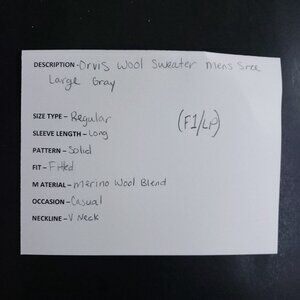 DESCRIPTION - Orvis Wool Sweater Mens Size
Large Gray
SIZE TYPE - Regular
(F1/LP)
SLEEVE LENGTH - Long
PATTERN - Solid
FIT - Fitted
MATERIAL - Merino Wool Blend
OCCASION - Casual
NECKLINE - V Neck